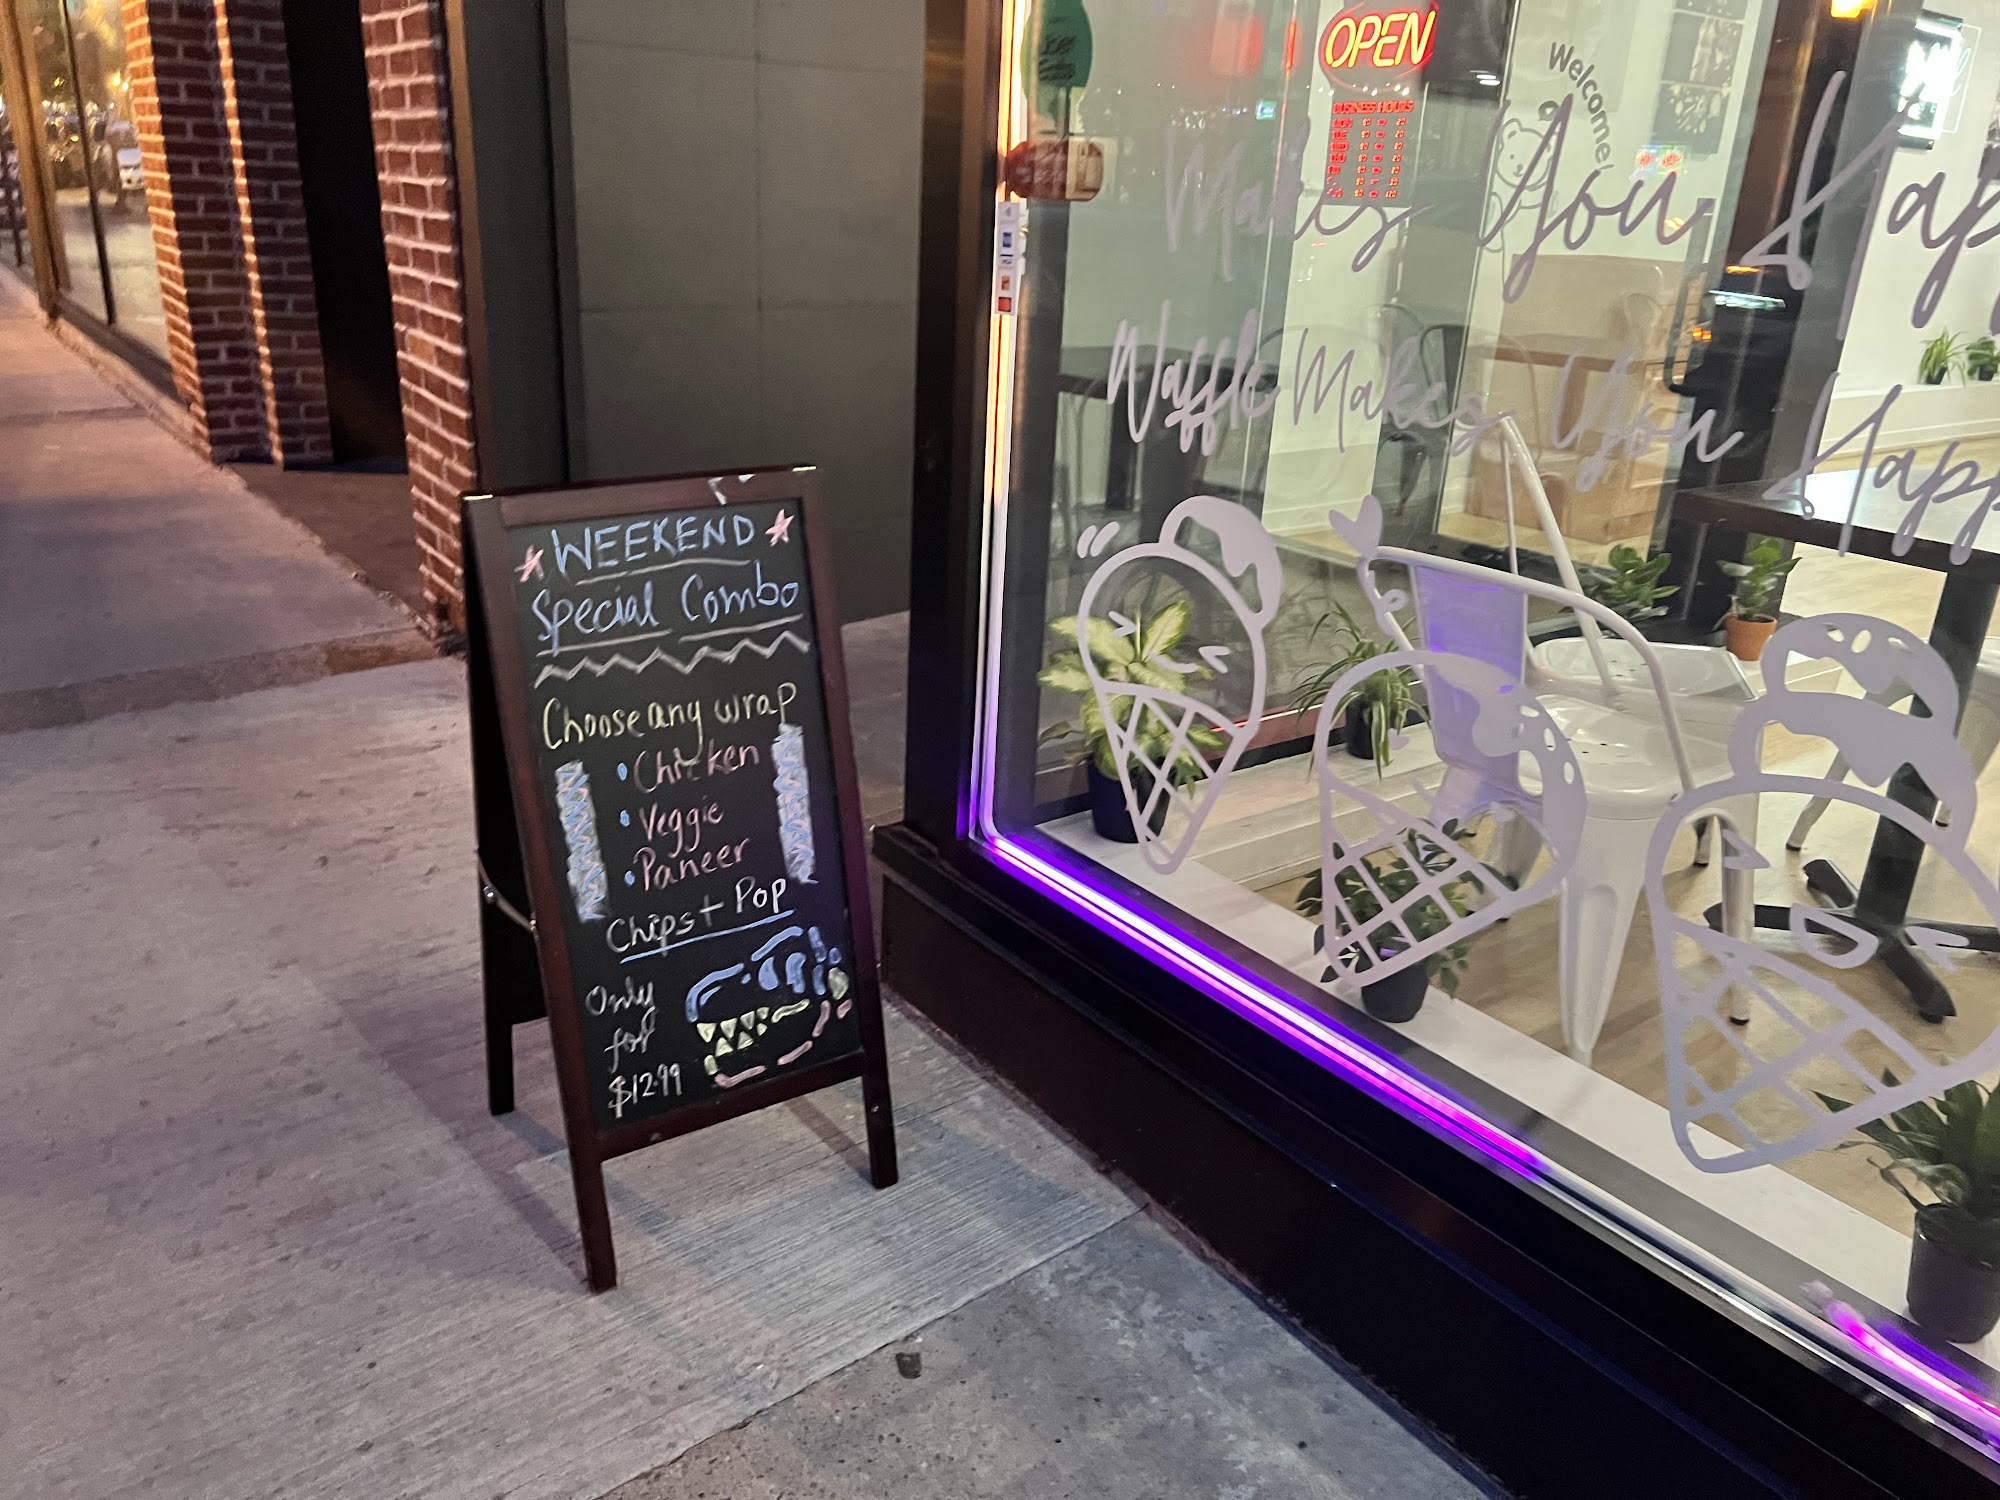 WEEKEND
Special Combo
Choose any wrap
• Chicken
• Veggie
• Paneer
Chips + Pop
Only
for
$12.99
Uber
Eats
OPEN
BUSINESS HOURS
Welcome!
Makes You Hap
Waffle Makes You Happ